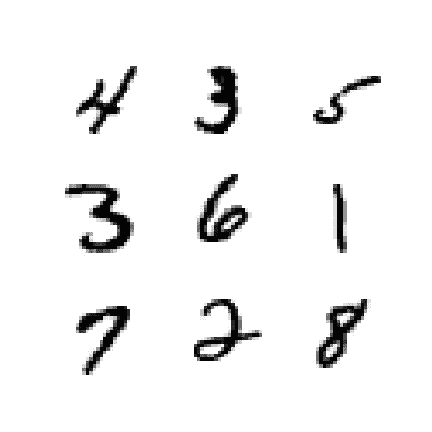 4 3 5
3 6 1
7 2 8